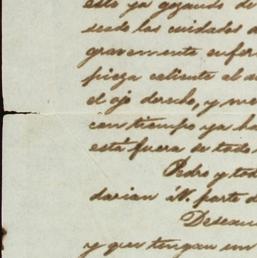 esto ya gozando de
sido las cuidados d
gravemente enfer
pieza caliente al a
el ojo derecho, y me
con tiempo ya ha
está fuera de todo
Pedro y tod
darian á V. parte d
Desean
y que tengan un